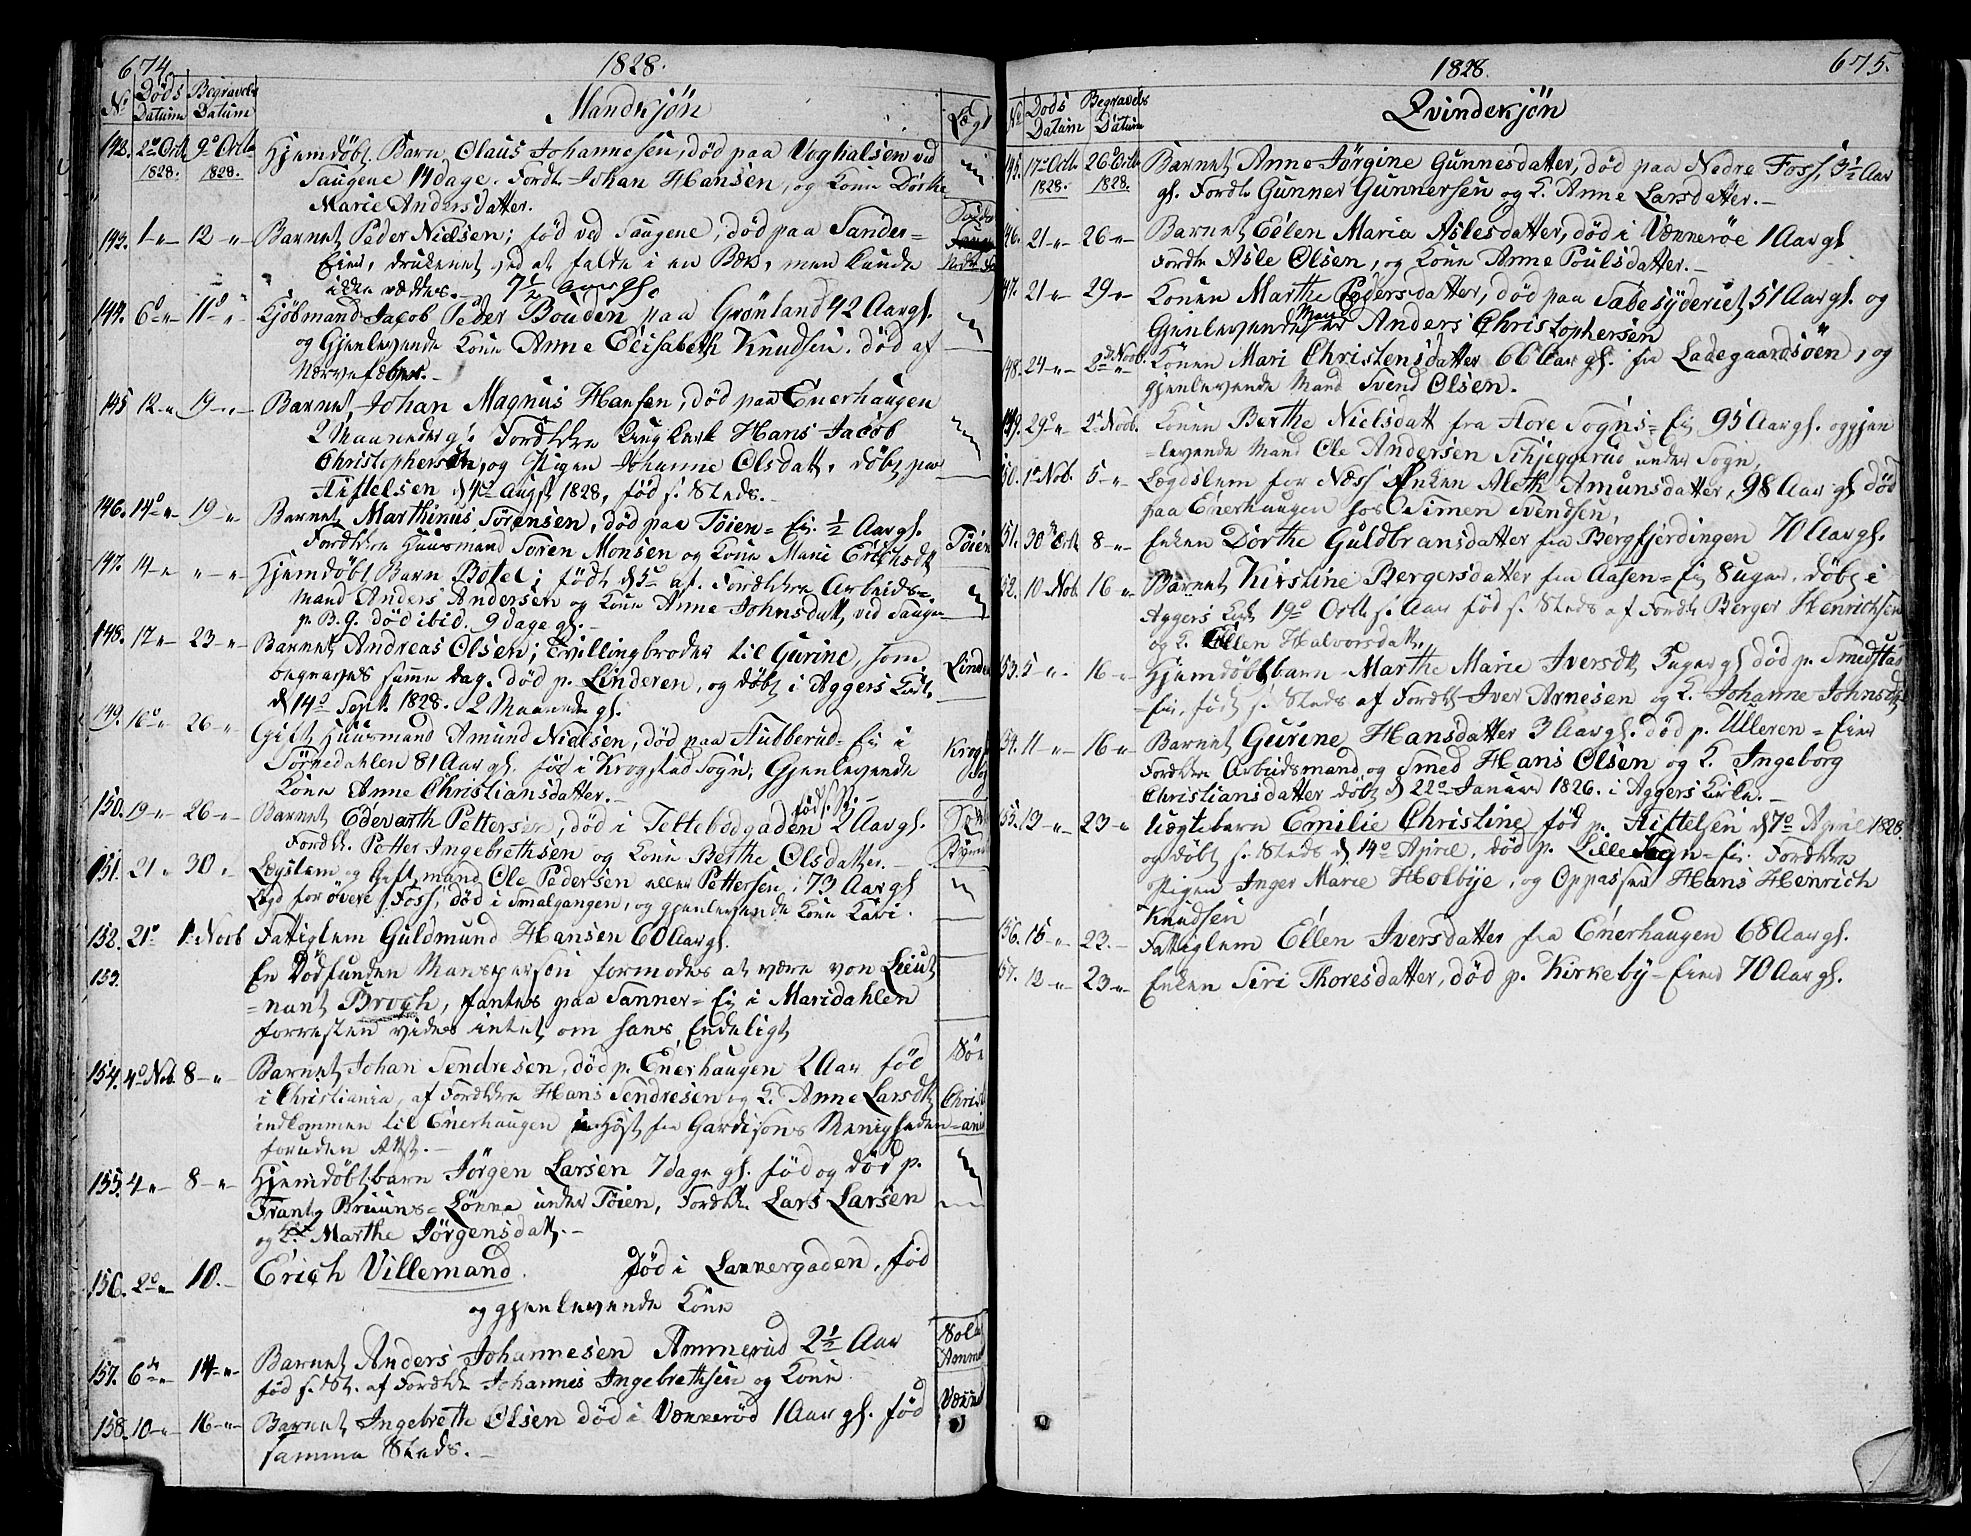 674.
1828.
Nº Døds Datum Begravels Datum
Mandkjøn
Lægd
142. 2den Octb 1828. 9de Octb 1828. Hjemdøbt Barn Olaus Johannesen, død paa Voghalsen ved
Saugene 14 dage. Forældre Johan Hansen, og Kone Dorthe
Marie Andersdatter.
143. 1-" 12-" Barnet Peder Nielsen; fød ved Saugene, død paa Sander=
Eier, druknet ved at falde i en Bæk, men kunde
ikke reddes. 7½ Aar gl.
144. 6-" 11-" Kjøbmand Jacob Peder Bouden paa Grønland 42 Aar gl.
og Gjenlevende Kone Anne Elisabeth Knudsen. død af
Nervefeber.
145 12-" 19-" Barnet Johan Magnus Hansen, død paa Enerhaugen
2 Maaneder gl. Forældre Ungkarl Hans Jacob
Christophersen, og Pigen Johanne Olsdatt. døbt paa
Stiftelsen d 4de Augst 1828, fød s. Steds.
146. 14-" 19-" Barnet Marthinus Sørensen, død paa Tøien= Eie ½ Aar gl.
Forældre Huusmand Søren Monsen og Kone Mari Erichsdt
Tøien
147. 14-" "-" Hjemdøbt Barn Bolel; født d 5de af Forældre Arbeids=
mand Anders Andersen og Kone Anne Johnsdatt ved Sauge
p. B. G. død ibid. 9 dage gl.
148. 17-" 23-" Barnet Andreas Olsen; Tvillingbroder til Gurine, som
begraves samme dag. død p. Linderen, og døbt i Aggers Kirke
d 14de Sept. 1828. 2 Maaneder gl.
Linde
149. 16-" 26-" Gift Huusmand Amund Nielsen, død paa Stubberud= Eie i
Sørkedahlen 81 Aar gl. fød i Krogstad Sogn; Gjenlevende
Kone Anne Christiansdatter.
Krog
150. 19-" 26-" Barnet Edevarth Pettersen, død i Tettebodgaden fød s. St. 2 Aar gl.
Forældre Petter Ingebrethsen og Kone Berthe Olsdatter.
151. 21-" 30-" Lægslem og Gift mand Ole Pedersen eller Pettersen, 73 Aar gl
Lægd for øvere Foss, død i Smalgangen, og gjenlevende Kone Kari.
152. 21-" 1. Novb Fattiglem Guldmund Hansen 60 Aar gl.
153. En Dødfunden Mansperson formodes at være von Lieut
=nant Brogh, fantes paa Sanner= Eie i Maridahlen
forresten vides intet om hans Endeligt
154. 4de Nob. 8-" Barnet Johan Sendresen, død p. Enerhaugen 2 Aar fød
i Christiania, af Forældre Hans Sendresen og K. Anne Larsdtt
indkommen til Enerhaugen i Høst fra Gardisons Menigheden
foruden Attst.
Christ
=ani
155. 4-" 8-" Hjemdøbt barn Jørgen Larsen 7 dage gl. fød og død p.
Frantz Bruuns= Løkke under Tøien, Forældre Lars Larsen
og K. Marthe Jørgensdatt.
156. 2-" 10.- Erich Villemand. død i Lakkergaden, fød
og gjenlevende Kone
157. 6-" 14-" Barnet Anders Johannesen Ammerud 2½ Aar
fød s. St. af Forældre Johannes Ingebrethsen og Kone
Amme
158. 10-" 16-" Barnet Ingebreth Olsen død i Vækkerød 1 Aar gl. fød
samme Steds.
1828.
675.
Ne Døds Datum Begravels Datum
Qvindekjøn
145. 17de Octb 1828. 26de Octb 1828. Barnet Anne Jørgine Gunnesdatter, død paa Nedre Foss, 3½ Aar
gl. Forældre Gunner Gunnersen og K. Anne Larsdatter.
46. 21-" 26-" Barnet Eelen Maria Aslesdatter, død i Vækkerøe 1 Aar gl
Forældre Asle Olsen, og Kone Anne Poulsdatter.
47. 21-" 29-" Konen Marthe Pedersdatter, død paa Sæbesyderiet 51 Aar gl. og
Gjenlevende Mand er Anders Christophersen
48. 24-" 2den Novb. Konen Mari Christensdatter 66 Aar gl. fra Ladegaardsøen, og
gjenlevende Mand Svend Olsen.
149. 29-" 2den Novb. Konen Berthe Nielsdatt fra Store Sogns= Eie 95 Aar gl. og gjen
=levende Mand Ole Andersen Schjeggerud under Sogn,
50. 1ste Nob. 5-" Lægdslem for Næss Enken Aleth Amunsdatter, 98 Aar gl død
paa Enerhaugen hos Simen Svendsen,
151. 30te Octb 8-" Enken Dorthe Guldbransdatter fra Bergfjerdingen 70 Aar gl.
52. 10 Nob. 16-" Barnet Kirstine Bergersdatter fra Aasen= Eie 8 uger, døbt i
Aggers Kirke 19de Octb s. Aar fød s. Steds af Forældre Berger Henrichsen
og K. Ellen Halvorsdatt.
53. 5-" 16-" Hjemdøbt barn Marthe Marie Iversdt, 3 uger gl død p. Smedstad
=Eie, født s. Steds af Forældre Iver Arnesen og K. Johanne Johnsdt
54. 11-" 16-" Barnet Gurine Hansdatter 3 Aar gl. død p. Ulleren= Eier
Forældre Arbeidsmand og Smed Hans Olsen og K. Ingeborg
Christiansdatter døbt d 22de Januar 1826. i Aggers Kirke.
55. 13-" 23-" Uægte barn Emilie Christine fød p. Stiftelsen d 7de April 1828
og døbt s. Steds d 14de April. død p. Lille Sogn= Eie Forældre
Pigen Inger Marie Holbye, og Oppasser Hans Henrich
Knudsen
156. 15-" 23.- Fattiglem Ellen Iversdatter fra Enerhaugen 68 Aar gl.
57. 12-" 23-" Enken Siri Thoresdatter, død p. Kirkeby- Eier 70 Aar gl.